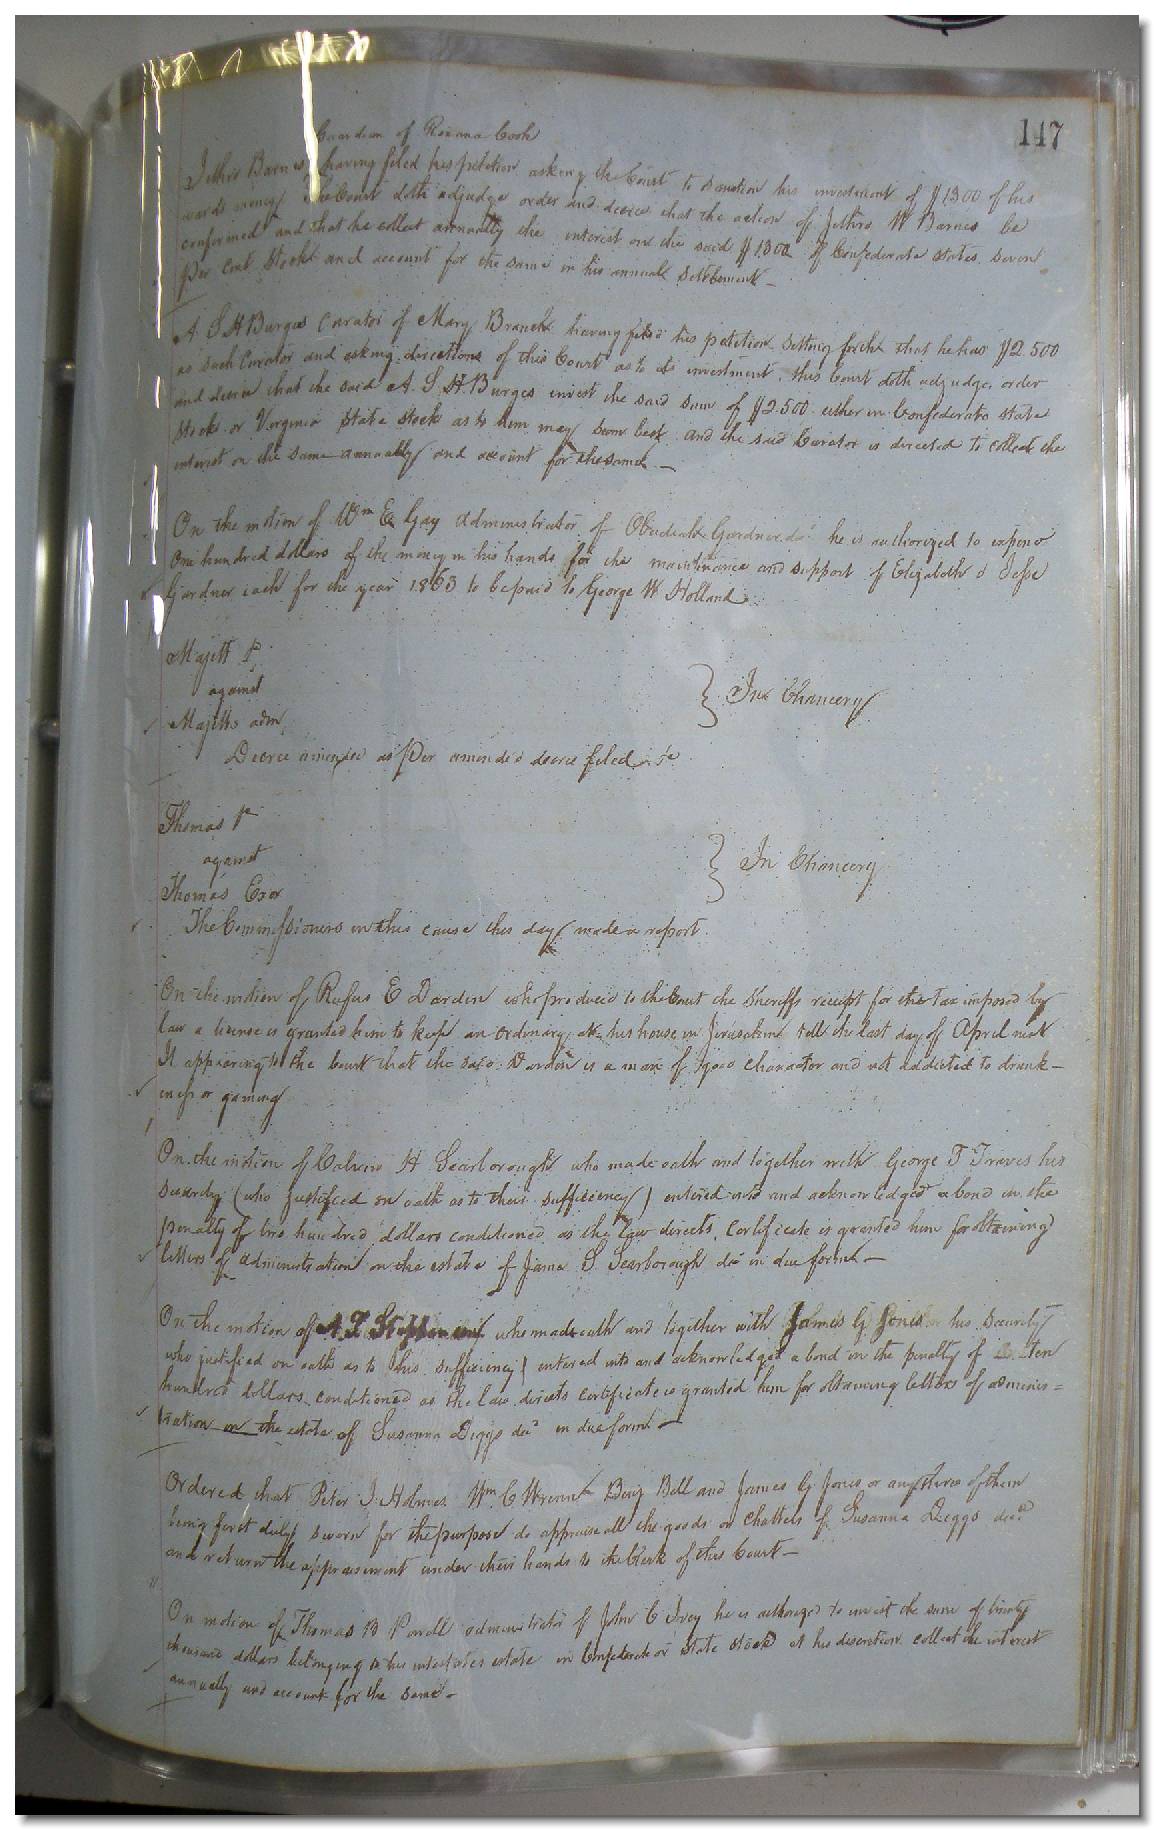 147
Guardian of Roxana Cook
Jethro Barnes having filed his petition asking the Court to sanction his investment of $1300 of his
wards money The Court doth adjudge order and decree that the action of Jethro W Barnes be
confirmed and that he collect annually the interest on the said $1300 of Confederate States seven
per cent Stock and account for the same in his annual settlement —
A. S. H Burges Curator of Mary Branch having filed his petition setting forth that he has $2.500
as such Curator and asking directions of this Court as to its investment, this Court doth adjudge, order
and decree that the said A. S. H. Burges invest the said sum of $2.500 either in Confederate State
Stock or Virginia State Stock as to him may seem best and the said Curator is directed to collect the
interest on the same annually and account for the same —
On the motion of Wm E Gay administrator of Obediah Gardner dc he is authorized to expend
One hundred dollars of the money in his hands for the maintinance and support of Elizabeth & Jesse
Gardner each for the year 1863 to be paid to George W Holland
Majett P
against
Majetts adm
} In Chancery
Decree amended as per amend'd decree filed &c
Thomas P
against
Thomas Exor
} In Chancery
The Commissioners in this cause this day made a report.
On the motion of Rufus E Darden who produced to the Court the Sheriffs receipt for the Tax imposed by
law a license is granted him to keep an ordinary at his house in Jerusalem till the last day of April next
It appearing to the Court that the said Darden is a man of good character and not addicted to drunk-
iness or gaming
On the motion of Calvin H Scarborough who made oath and together with George T Graves his
Security (who justified on oath as to their sufficiency) entered into and acknowledged a bond in the
penalty of two hundred dollars conditioned as the Law directs, Certificate is granted him for obtaining
letters of administration on the estate of Jame S Scarborough dc in due form —
On the motion of A. T. who made oath and together with James G Jones his Security
who justified on oath as to his sufficiency) entered into and acknowledged a bond in the penalty of ten
hundred dollars conditioned as the law directs certificate is granted him for obtaining letters of adminis=
tration on the estate of Susanna Diggs decd in due form —
Ordered that Peter J. Holmes Wm C Wrenn Benj Bell and James G Jones or any three of them
being first duly sworn for the purpose do appraise all the goods or Chattels of Susanna Diggs decd
and return the appraisement under their hands to the Clerk of this Court —
On motion of Thomas B Powell administrator of John C Ivey he is authorized to invest the sum of twenty
thousand dollars belonging to his intestates estate in Confederate or State Stock at his discretion collect the interest
annually and account for the same —